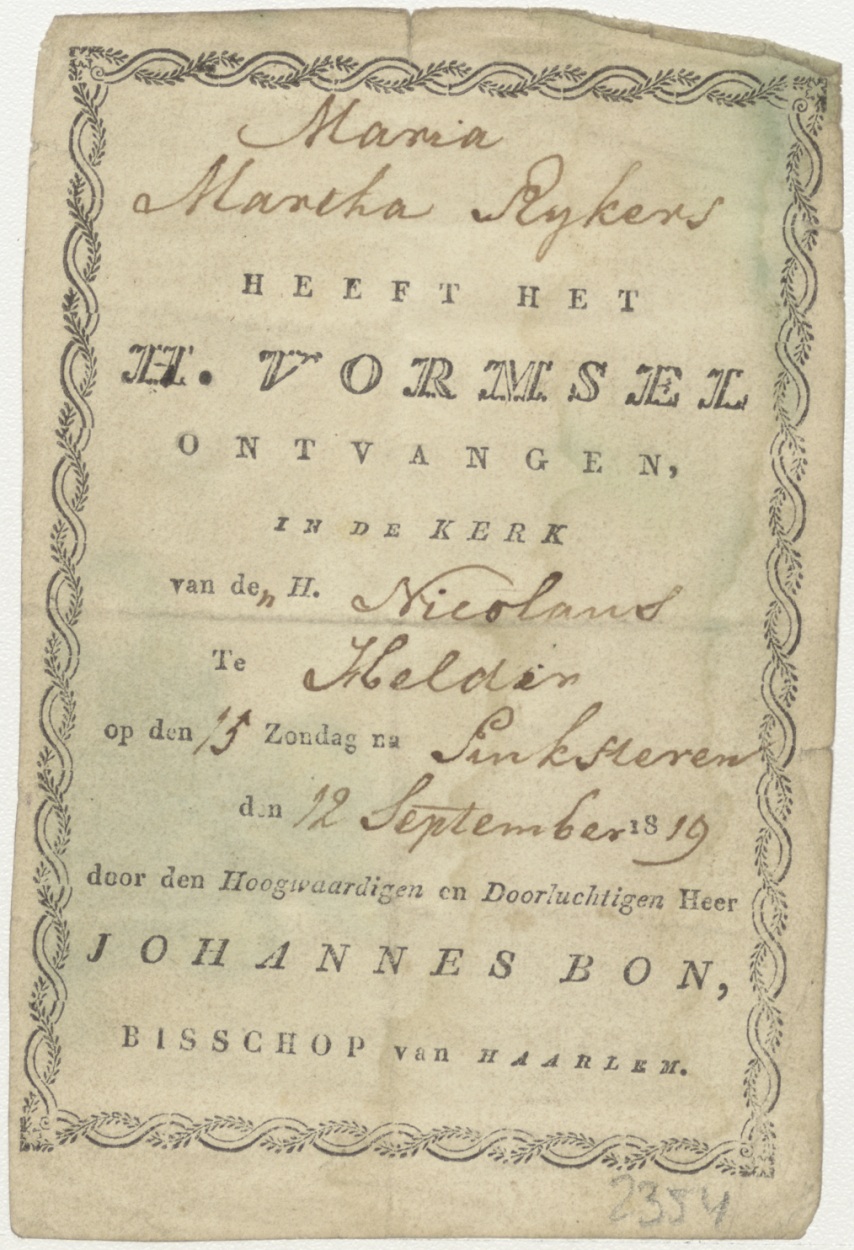 Maria
Martha Rykers
HEEFT HET
H. VORMSEL
ONTVANGEN,
IN DE KERK
van den H. Nicolaus
Te Helder
op den 15 Zondag na Pinksteren
den 12 September 1819
door den Hoogwaardigen en Doorluchtigen Heer
JOHANNES BON,
BISSCHOP van HAARLEM.
2354